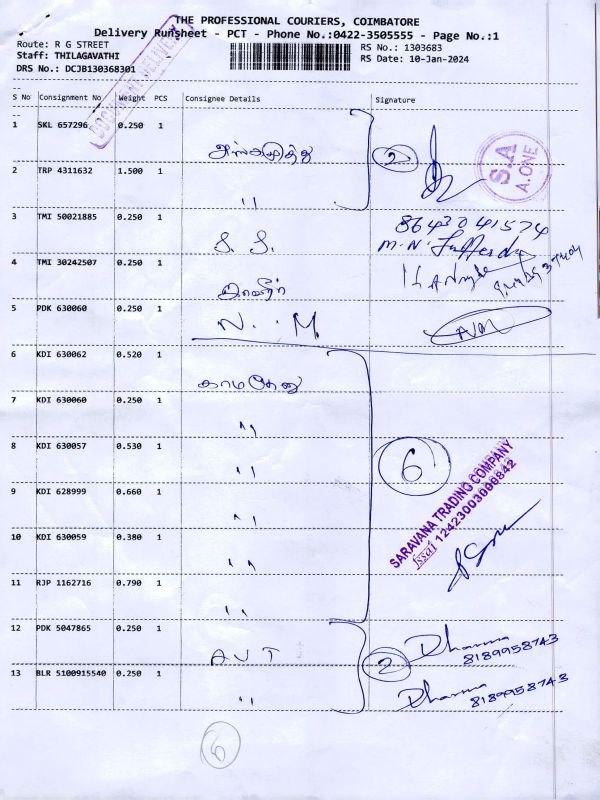 THE PROFESSIONAL COURIERS, COIMBATORE
Delivery Runsheet - PCT - Phone No.:0422-3505555 - Page No.:1
Route: R G STREET
Staff: THILAGAVATHI
DRS No.: DCJB130368301
RS No.: 1303683
RS Date: 10-Jan-2024
S No Consignment No Weight PCS Consignee Details Signature
1 SKL 657296 0.250 1
2
S.A
A.ONE
2 TRP 4311632 1.500 1
"
3 TMI 50021885 0.250 1
S. S.
8643041574
4 TMI 30242507 0.250 1
5 PDK 630060 0.250 1
N. M.
6 KDI 630062 0.520 1
காமதேனு
7 KDI 630060 0.250 1
"
8 KDI 630057 0.530 1
"
6
SARAVANA TRADING COMPANY
fssai 12423003000842
9 KDI 628999 0.660 1
"
10 KDI 630059 0.380 1
"
11 RJP 1162716 0.790 1
"
12 PDK 5047865 0.250 1
AVT
2
Dharma
8189958743
13 BLR 5100915540 0.250 1
"
Dharma
8189958743
6